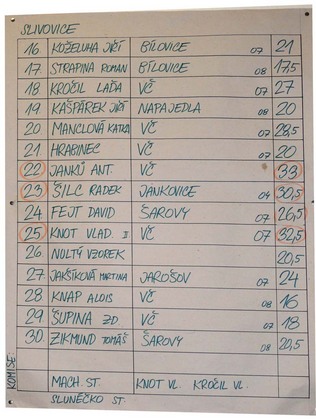 SLIVOVICE
16 KOŽELUHA JIŘÍ BÍLOVICE 07 21
17. STRAPINA ROMAN BÍLOVICE 08 17,5
18 KROČIL LAĎA VČ 07 27
19 KAŠPÁREK JIŘÍ NAPAJEDLA 08 20
20 MANCLOVÁ KATKA VČ 07 28,5
21 HRABINEC VČ 07 20
22 JANKŮ ANT. VČ 33
23 ŠILC RADEK JANKOVICE 04 30,5
24 FEJT DAVID ŠAROVY 07 26,5
25 KNOT VLAD. II VČ 07 32,5
26. NULTÝ VZOREK 20,5
27. JAKŠÍKOVÁ MARTINA JAROŠOV 07 24
28 KNAP ALOIS VČ 08 16
29 ŠUPINA ZD VČ 07 18
30. ZIKMUND TOMÁŠ ŠAROVY 08 20,5
KOMISE
MACH. ST. KNOT VL. KROČIL VL.
SLUNÉČKO ST.